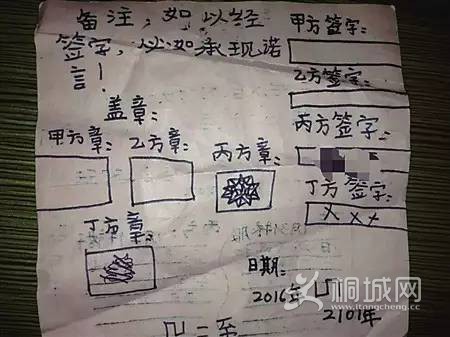 备注，如以经
签字，必如承现诺
言！
盖章：
甲方签字：
乙方签字：
丙方签字：
丁方签字：
xxx
甲方章：
乙方章：
丙方章：
丁方章：
日期：
2016年
2101年
二至
桐城网
www.itongcheng.cc